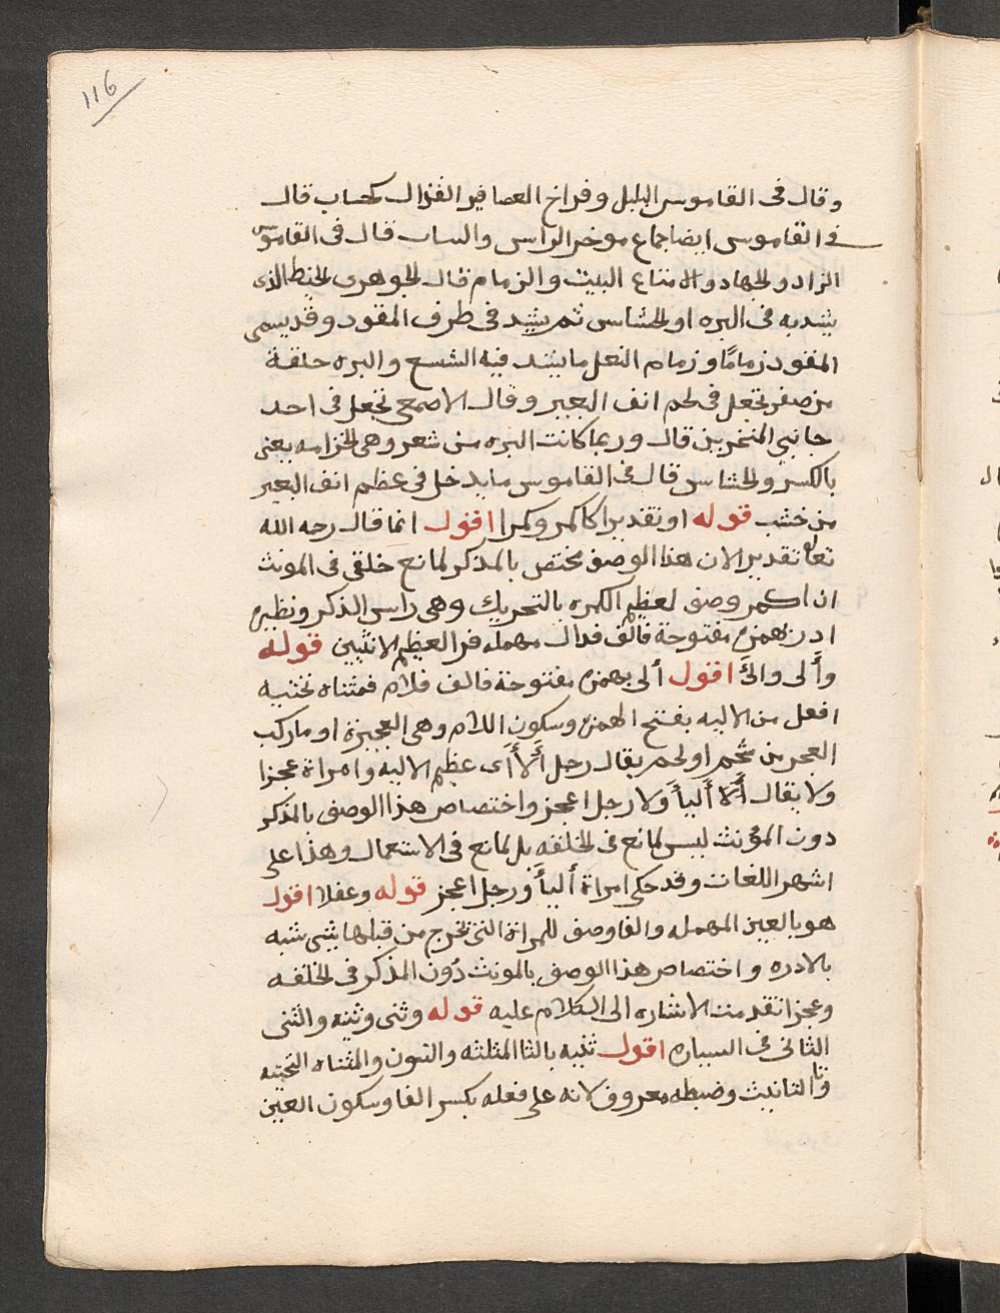 116
وقال فى القاموس البلبل وفراخ العصافير القذال كحساب قال
فى القاموس ايضا جماع موخر الراس والبتات قال فى القاموس
الزاد والجهاد والامتاع البيت والزمام قال الجوهرى الخيط الذى
يشد به فى البره او الخشاس ثم يشد فى طرف المقود وقد يسمى
المقود زمامًا وزمام النعل ما يشد فيه الشسع والبره حلقة
من صفر تجعل فى لحم انف البعير وقال الاصمعى تجعل فى احد
جانبى المنخرين قال وربما كانت البره من شعر وهى الخزامه يعنى
بالكسر والخشاس قال فى القاموس ما يدخل فى عظم انف البعير
من خشب قوله او تقديرا كاكمر وكمرا اقول انما قال رحمه الله
تعالى تقديرا لان هذا الوصف مختص بالمذكر لمانع خلقى فى المونث
ان اكمر وصف لعظيم الكمره بالتحريك وهى راس الذكر ونظيره
ادر بهمزه مفتوحة فالف فدال مهمله فرا لعظيم الانثيين قوله
وألى والىَ اقول ألى بهمزه مفتوحة فالف فلام فمثناه تحتيه
افعل من الاليه بفتح الهمزه وسكون اللام وهى العجيزة او ماركب
العجز من شحم او لحم يقال رجل ألأ أى عظيم الاليه وامراة عجزا
ولا يقال ألا ألياً ولا رجل اعجز واختصاص هذا الوصف بالمذكر
دون المؤنث ليس لمانع فى الخلقه بل لمانع فى الاستعمال وهذا على
اشهر اللغات وقد حكى امراة ألياً ورجل اعجز قوله وعفلا اقول
هو بالعين المهمله والفا وصف للمراة التى تخرج من قبلها شى شبه
بالادره واختصاص هذا الوصف بالمونث دون المذكر فى الخلقه
وعجزا تقدمت الاشاره الى الكلام عليه قوله وثنى وثنه والثنى
الثانى فى السياره اقول ثنيه بالثا المثلثه والنون والمثناه التحتيه
وتا التانيث وضبطه معروف لانه على فعله بكسر الفا وسكون العين